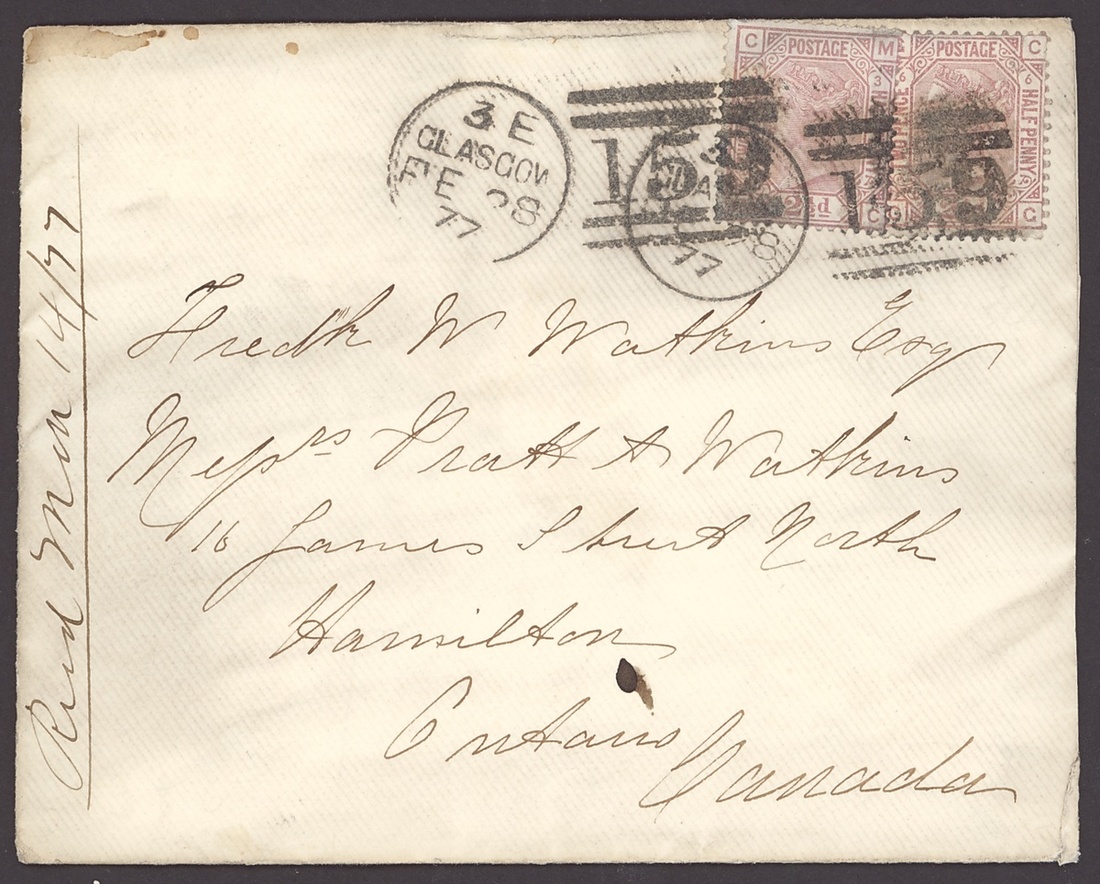 C POSTAGE M
POSTAGE C
3 HA
6 TWO PENCE
6 HALFPENNY
2½d C
C
3 E
GLASGOW
FE 28
77
159
77
159
Fredk W Watkins Esqr
Messrs Pratt & Watkins
16 James Street North
Hamilton
Ontario
Canada
Recd Mch 14/77